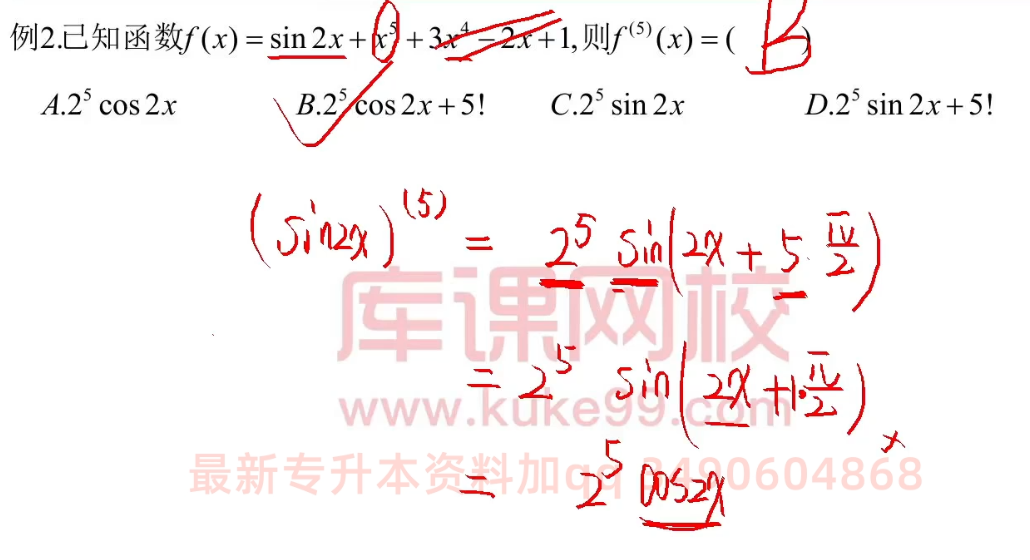 例2.已知函数f(x)=sin2x+x⁵+3x⁴-2x+1,则f⁽⁵⁾(x)=( B )
A.2⁵cos2x B.2⁵cos2x+5! C.2⁵sin2x D.2⁵sin2x+5!
(sin2x)⁽⁵⁾ = 2⁵ sin(2x+5·π/2)
库课网校
= 2⁵ sin(2x+1·π/2)
www.kuke99.com
最新专升本资料加qq 3490604868
= 2⁵ cos2x